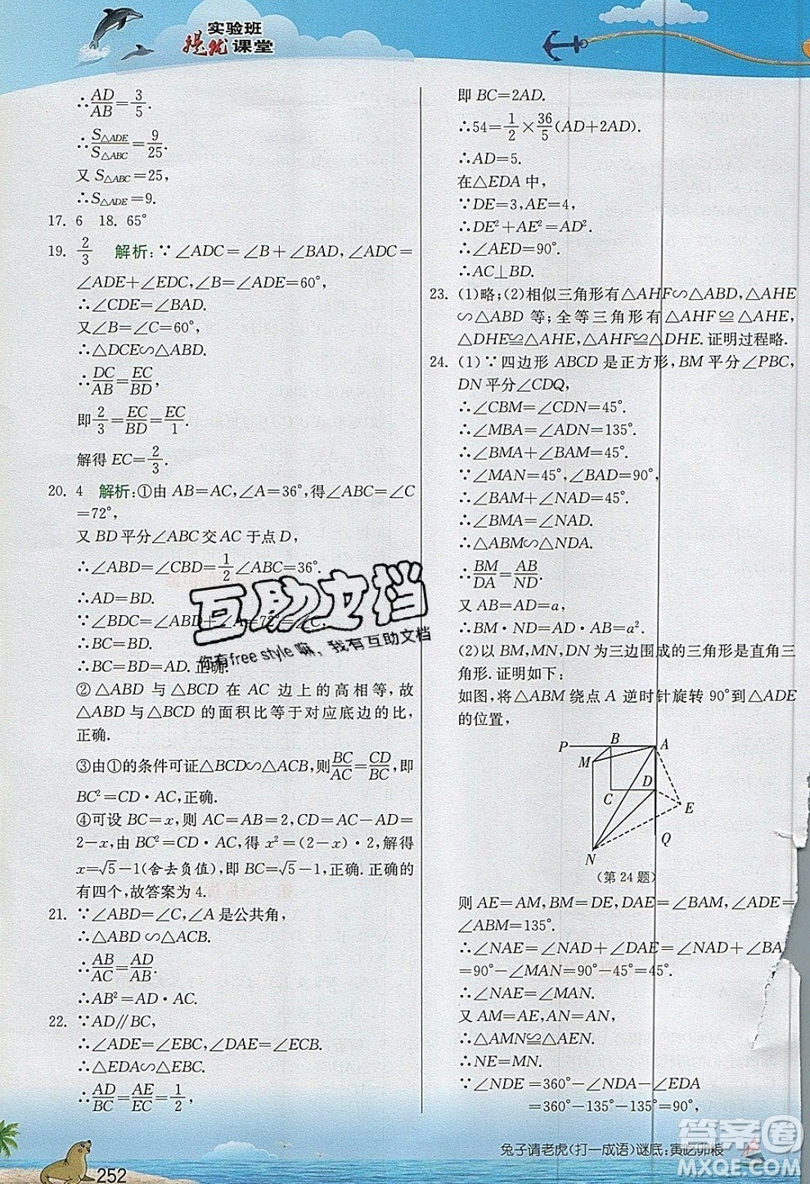 实验班
提优课堂
∴AD/AB=3/5.
∴S△ADE/S△ABC=9/25.
又 S△ABC=25,
∴S△ADE=9.
17. 6 18. 65°
19. 2/3 解析:∵∠ADC=∠B+∠BAD,∠ADC
=∠ADE+∠EDC,∠B=∠ADE=60°,
∴∠CDE=∠BAD.
又∠B=∠C=60°,
∴△DCE∽△ABD.
∴DC/AB=EC/BD,
即2/3=EC/BD=EC/1.
解得 EC=2/3.
20. 4 解析:①由 AB=AC,∠A=36°,得∠ABC=∠C
=72°,
又 BD 平分∠ABC 交 AC 于点 D,
∴∠ABD=∠CBD=1/2∠ABC=36°.
∴AD=BD.
∵∠BDC=∠ABD+∠A=72°=∠C,
∴BC=BD.
∴BC=BD=AD.正确.
②△ABD 与△BCD 在 AC 边上的高相等,故
△ABD 与△BCD 的面积比等于对应底边的比,
正确.
③由①的条件可证△BCD∽△ACB,则BC/AC=CD/BC,即
BC²=CD·AC,正确.
④可设 BC=x,则 AC=AB=2,CD=AC-AD=
2-x,由 BC²=CD·AC,得 x²=(2-x)·2,解得
x=√5-1(舍去负值),即 BC=√5-1,正确.正确的
有四个,故答案为4.
21. ∵∠ABD=∠C,∠A 是公共角,
∴△ABD∽△ACB.
∴AB/AC=AD/AB.
∴AB²=AD·AC.
22. ∵AD∥BC,
∴∠ADE=∠EBC,∠DAE=∠ECB.
∴△EDA∽△EBC.
∴AD/BC=AE/EC=1/2,
即 BC=2AD.
∴54=1/2×36/5(AD+2AD).
∴AD=5.
在△EDA 中,
∵DE=3,AE=4,
∴DE²+AE²=AD².
∴∠AED=90°.
∴AC⊥BD.
23. (1)略;(2)相似三角形有△AHF∽△ABD,△AHE
∽△ABD 等;全等三角形有△AHF≌△AHE,
△DHE≌△AHE,△AHF≌△DHE.证明过程略.
24. (1)∵四边形 ABCD 是正方形,BM 平分∠PBC,
DN 平分∠CDQ,
∴∠CBM=∠CDN=45°.
∴∠MBA=∠ADN=135°.
∴∠BMA+∠BAM=45°.
∵∠MAN=45°,∠BAD=90°,
∴∠BAM+∠NAD=45°.
∴∠BMA=∠NAD.
∴△ABM∽△NDA.
∴BM/DA=AB/ND.
又 AB=AD=a,
∴BM·ND=AD·AB=a².
(2)以 BM,MN,DN 为三边围成的三角形是直角三
角形.证明如下:
如图,将△ABM 绕点 A 逆时针旋转 90°到△ADE
的位置,
P B A
M
C D
E
Q
N
(第 24 题)
则 AE=AM,BM=DE,∠DAE=∠BAM,∠ADE=
∠ABM=135°.
∴∠NAE=∠NAD+∠DAE=∠NAD+∠BAM
=90°-∠MAN=90°-45°=45°.
∴∠NAE=∠MAN.
又 AM=AE,AN=AN,
∴△AMN≌△AEN.
∴NE=MN.
∵∠NDE=360°-∠ADN-∠EDA
=360°-135°-135°=90°,
互助文档
你有free style嘛,我有互助文档
兔子请老虎(打一成语)谜底:寅吃卯粮
252
答案圈
MXQE.COM